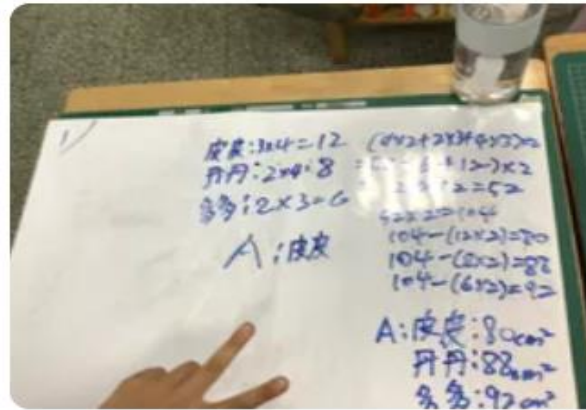 1/
皮皮：3×4=12
丹丹：2×4=8
多多：2×3=6
A：皮皮
(4×2+2×3+4×3)×2
12)×2
=52
52×2=104
104-(12×2)=80
104-(8×2)=88
104-(6×2)=92
A：皮皮：80cm²
丹丹：88cm²
多多：92cm²